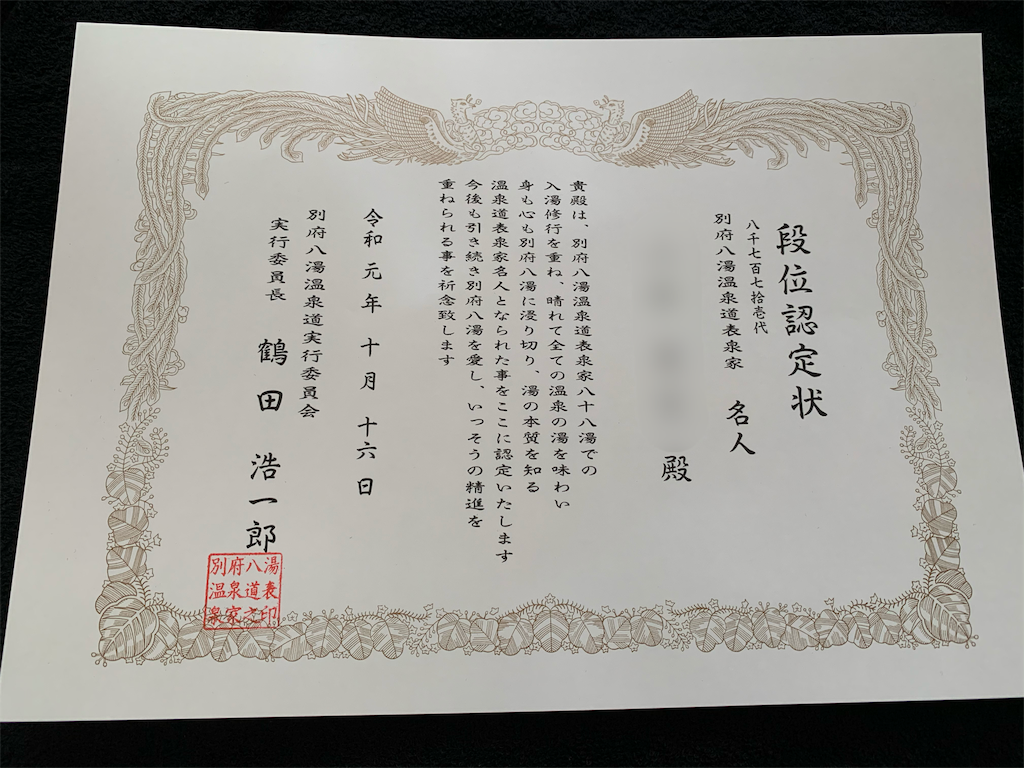 段位認定状
八千七百七拾壱代
別府八湯温泉道表泉家 名人
殿
貴殿は、別府八湯温泉道表泉家八十八湯での
入湯修行を重ね、晴れて全ての温泉の湯を味わい
身も心も別府八湯に浸り切り、湯の本質を知る
温泉道表泉家名人となられた事をここに認定いたします
今後も引き続き別府八湯を愛し、いっそうの精進を
重ねられる事を祈念致します
令和元年十月十六日
別府八湯温泉道実行委員会
実行委員長 鶴田浩一郎
別府八湯
温泉道表
泉家之印